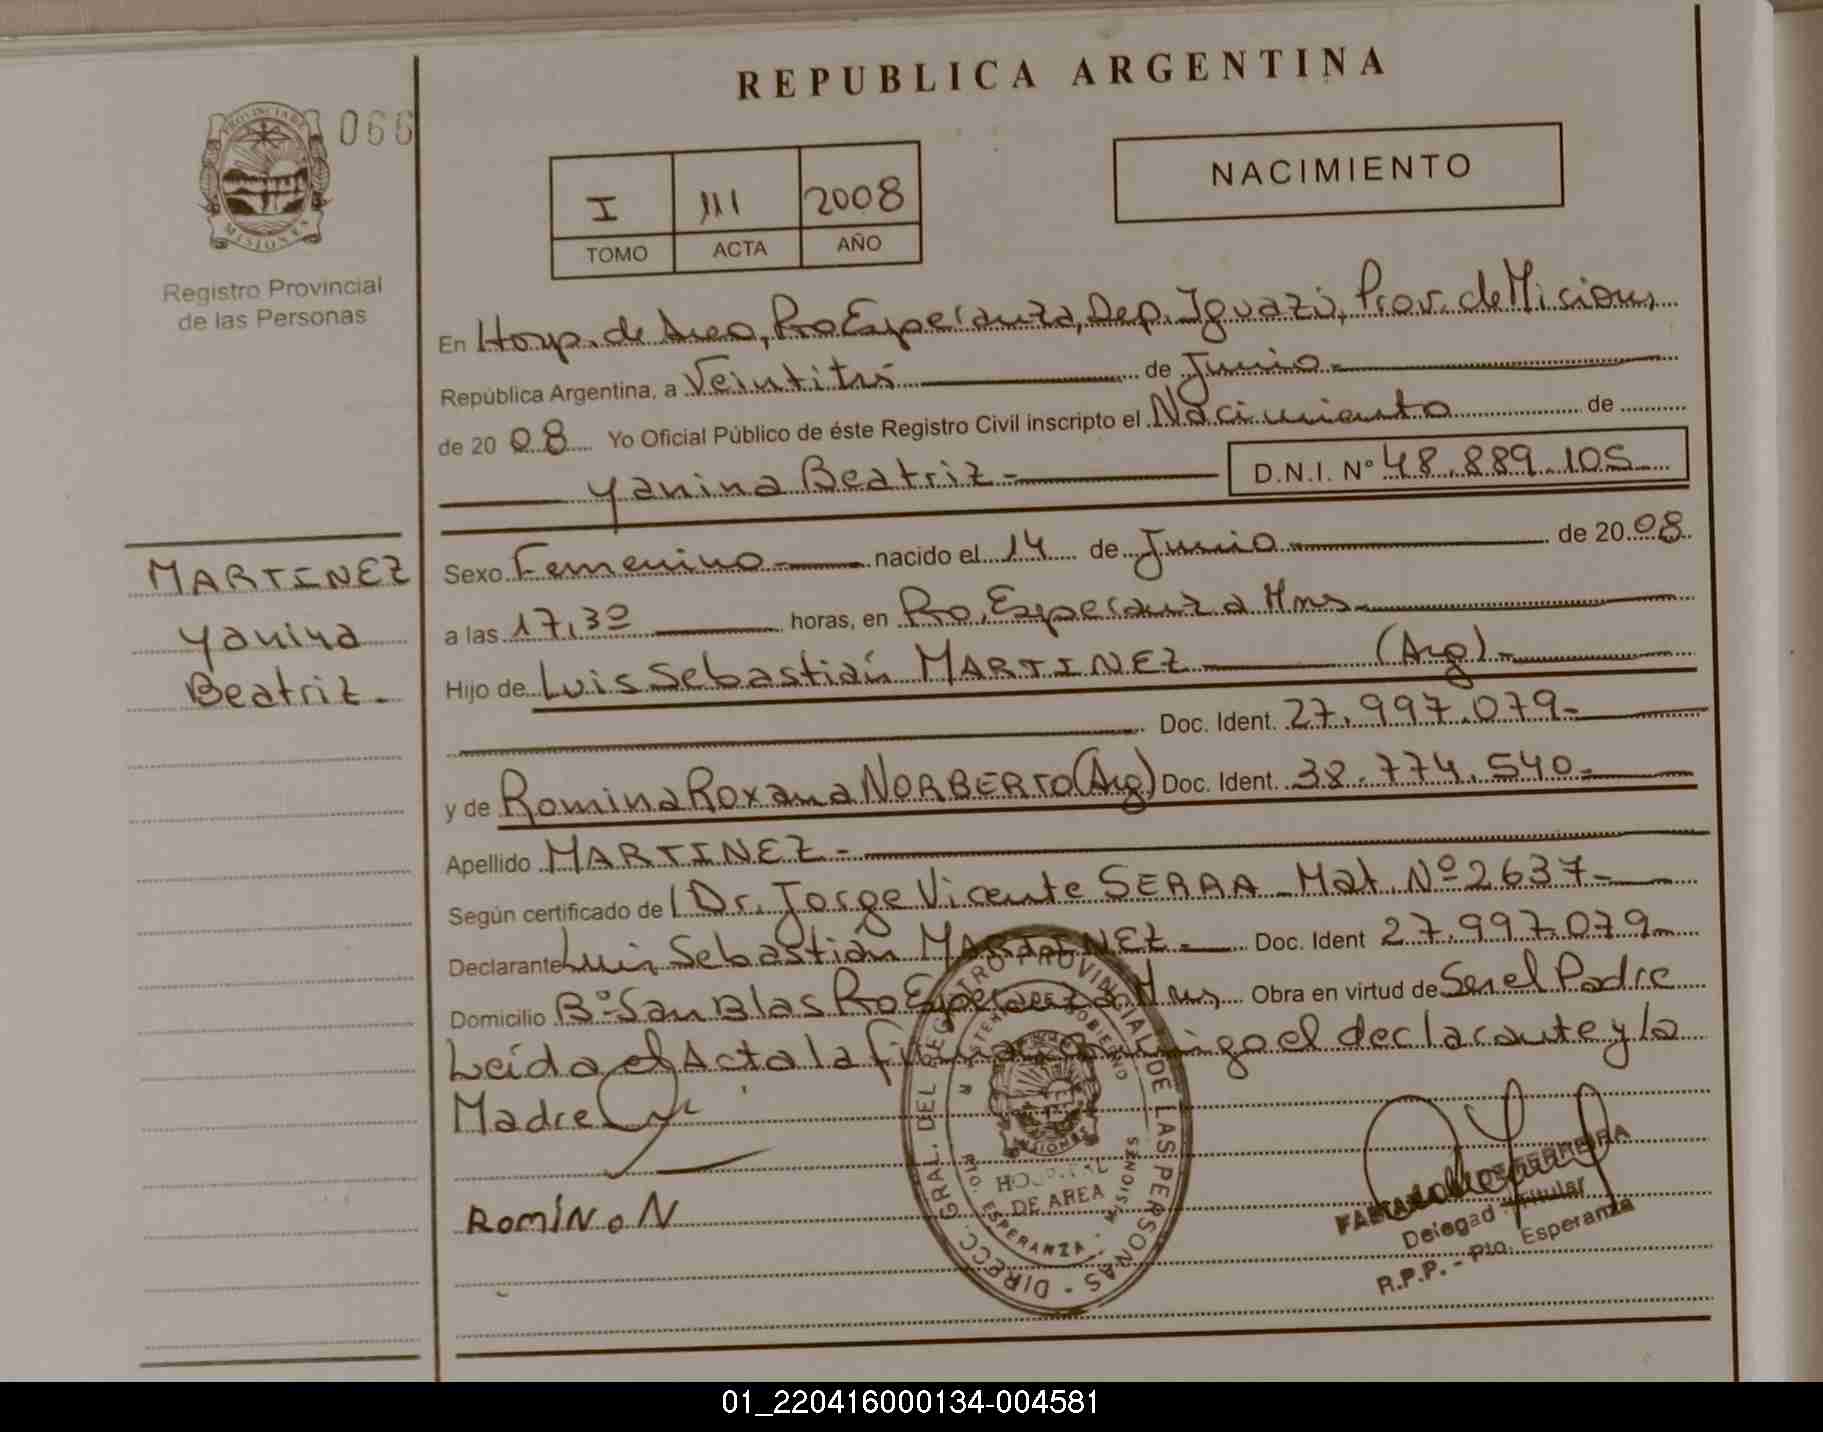 REPUBLICA ARGENTINA
066
PROVINCIA DE
MISIONES
Registro Provincial
de las Personas
NACIMIENTO
I 111 2008
TOMO ACTA AÑO
En Hosp. de Area, Pto Esperanza, Dep. Iguazú, Prov. de Misiones,
República Argentina, a Veintitrés de Junio.-
de 2008 Yo Oficial Público de éste Registro Civil inscripto el Nacimiento de
Yanina Beatriz.- D.N.I. N° 48.889.105
MARTINEZ
Yanina
Beatriz.-
Sexo Femenino nacido el 14 de Junio de 2008
a las 17,30 horas, en Pto. Esperanza Mnes
Hijo de Luis Sebastián MARTINEZ (Arg).-
Doc. Ident. 27.997.079.-
y de Romina Roxana NORBERTO (Arg) Doc. Ident. 38.774.540.-
Apellido MARTINEZ.-
Según certificado de l Dr. Jorge Vicente SERRA Mat. Nº 2637.-
Declarante Luis Sebastián MARTINEZ.- Doc. Ident 27.997.079
Domicilio B° San Blas Pto Esperanza Mnes, Obra en virtud de Ser el Padre
Leída el Acta la firman conmigo el declarante y la
Madre
RomiNa N
DIRECC. GRAL. DEL REGISTRO PROVINCIAL DE LAS PERSONAS -
MINISTERIO GOBIERNO
MISIONES
HOSPITAL
DE AREA
PTO. ESPERANZA - MISIONES
FERREIRA
Delegad Titular
R.P.P. - Pto. Esperanza
01_220416000134-004581